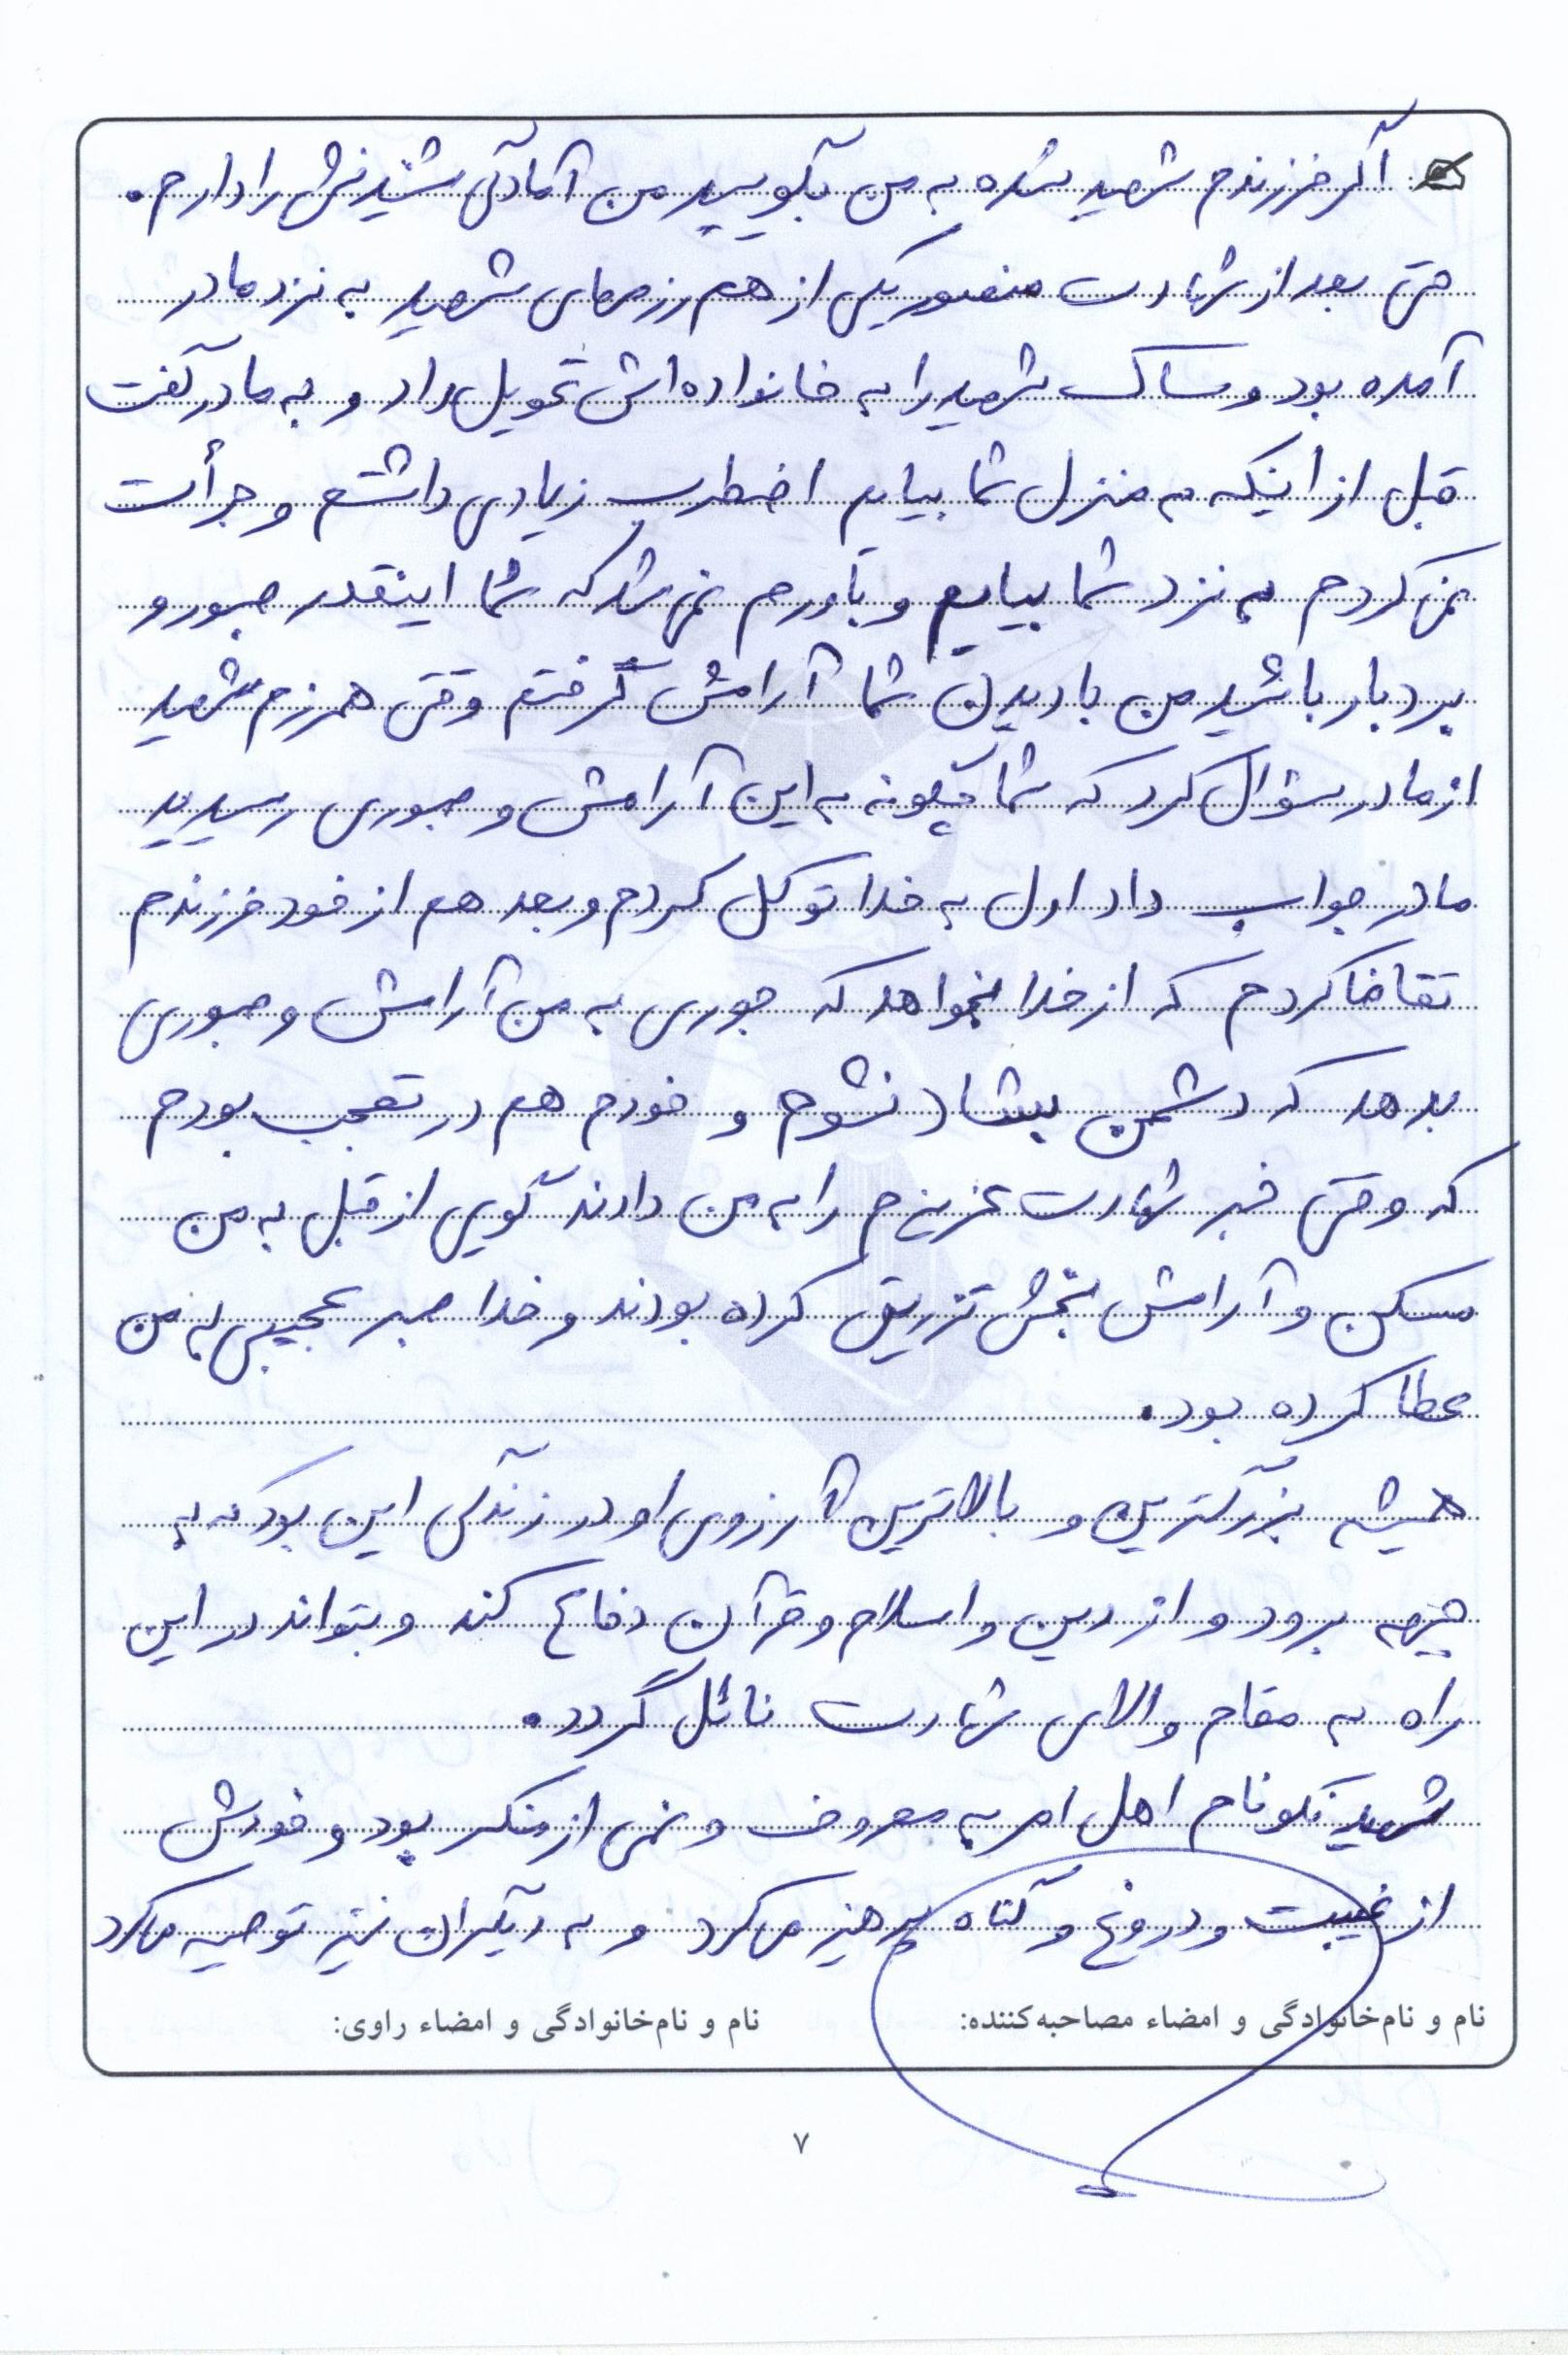 اگر فرزندم شهید شده به من بگویید من آمادگی شنیدنش را دارم.
حتی بعد از شهادت منصور یکی از هم رزمهای شهید به نزد مادر
آمده بود و ساک شهید را به خانواده‌اش تحویل داد و به مادر گفت
قبل از اینکه به منزل شما بیایم اضطراب زیادی داشتم و جرأت
نمی‌کردم به نزد شما بیایم و باورم نمی‌شد که شما اینقدر صبور و
بردبار باشید من با دیدن شما آرامش گرفتم وقتی همرزم شهید
از مادر سؤال کرد که شما چگونه به این آرامش و صبوری رسیدید
مادر جواب داد اول به خدا توکل کردم و بعد هم از خود فرزندم
تقاضا کردم که از خدا بخواهد که جوری به من آرامش و صبوری
بدهد که دشمن شاد نشوم و خودم هم در تعجب بودم
که وقتی خبر شهادت عزیزم را به من دادند گویی از قبل به من
مسکن و آرامش بخش تزریق کرده بودند و خدا صبر عجیبی به من
عطا کرده بود.
همیشه بزرگترین و بالاترین آرزوی او در زندگی این بود که به
جبهه برود و از دین و اسلام و قرآن دفاع کند و بتواند در این
راه به مقام والای شهادت نائل گردد.
شهید نکونام اهل امر به معروف و نهی از منکر بود و خودش
از غیبت و دروغ و گناه پرهیز می‌کرد و به دیگران نیز توصیه میکرد
نام و نام‌خانوادگی و امضاء مصاحبه‌کننده: نام و نام‌خانوادگی و امضاء راوی:
۷